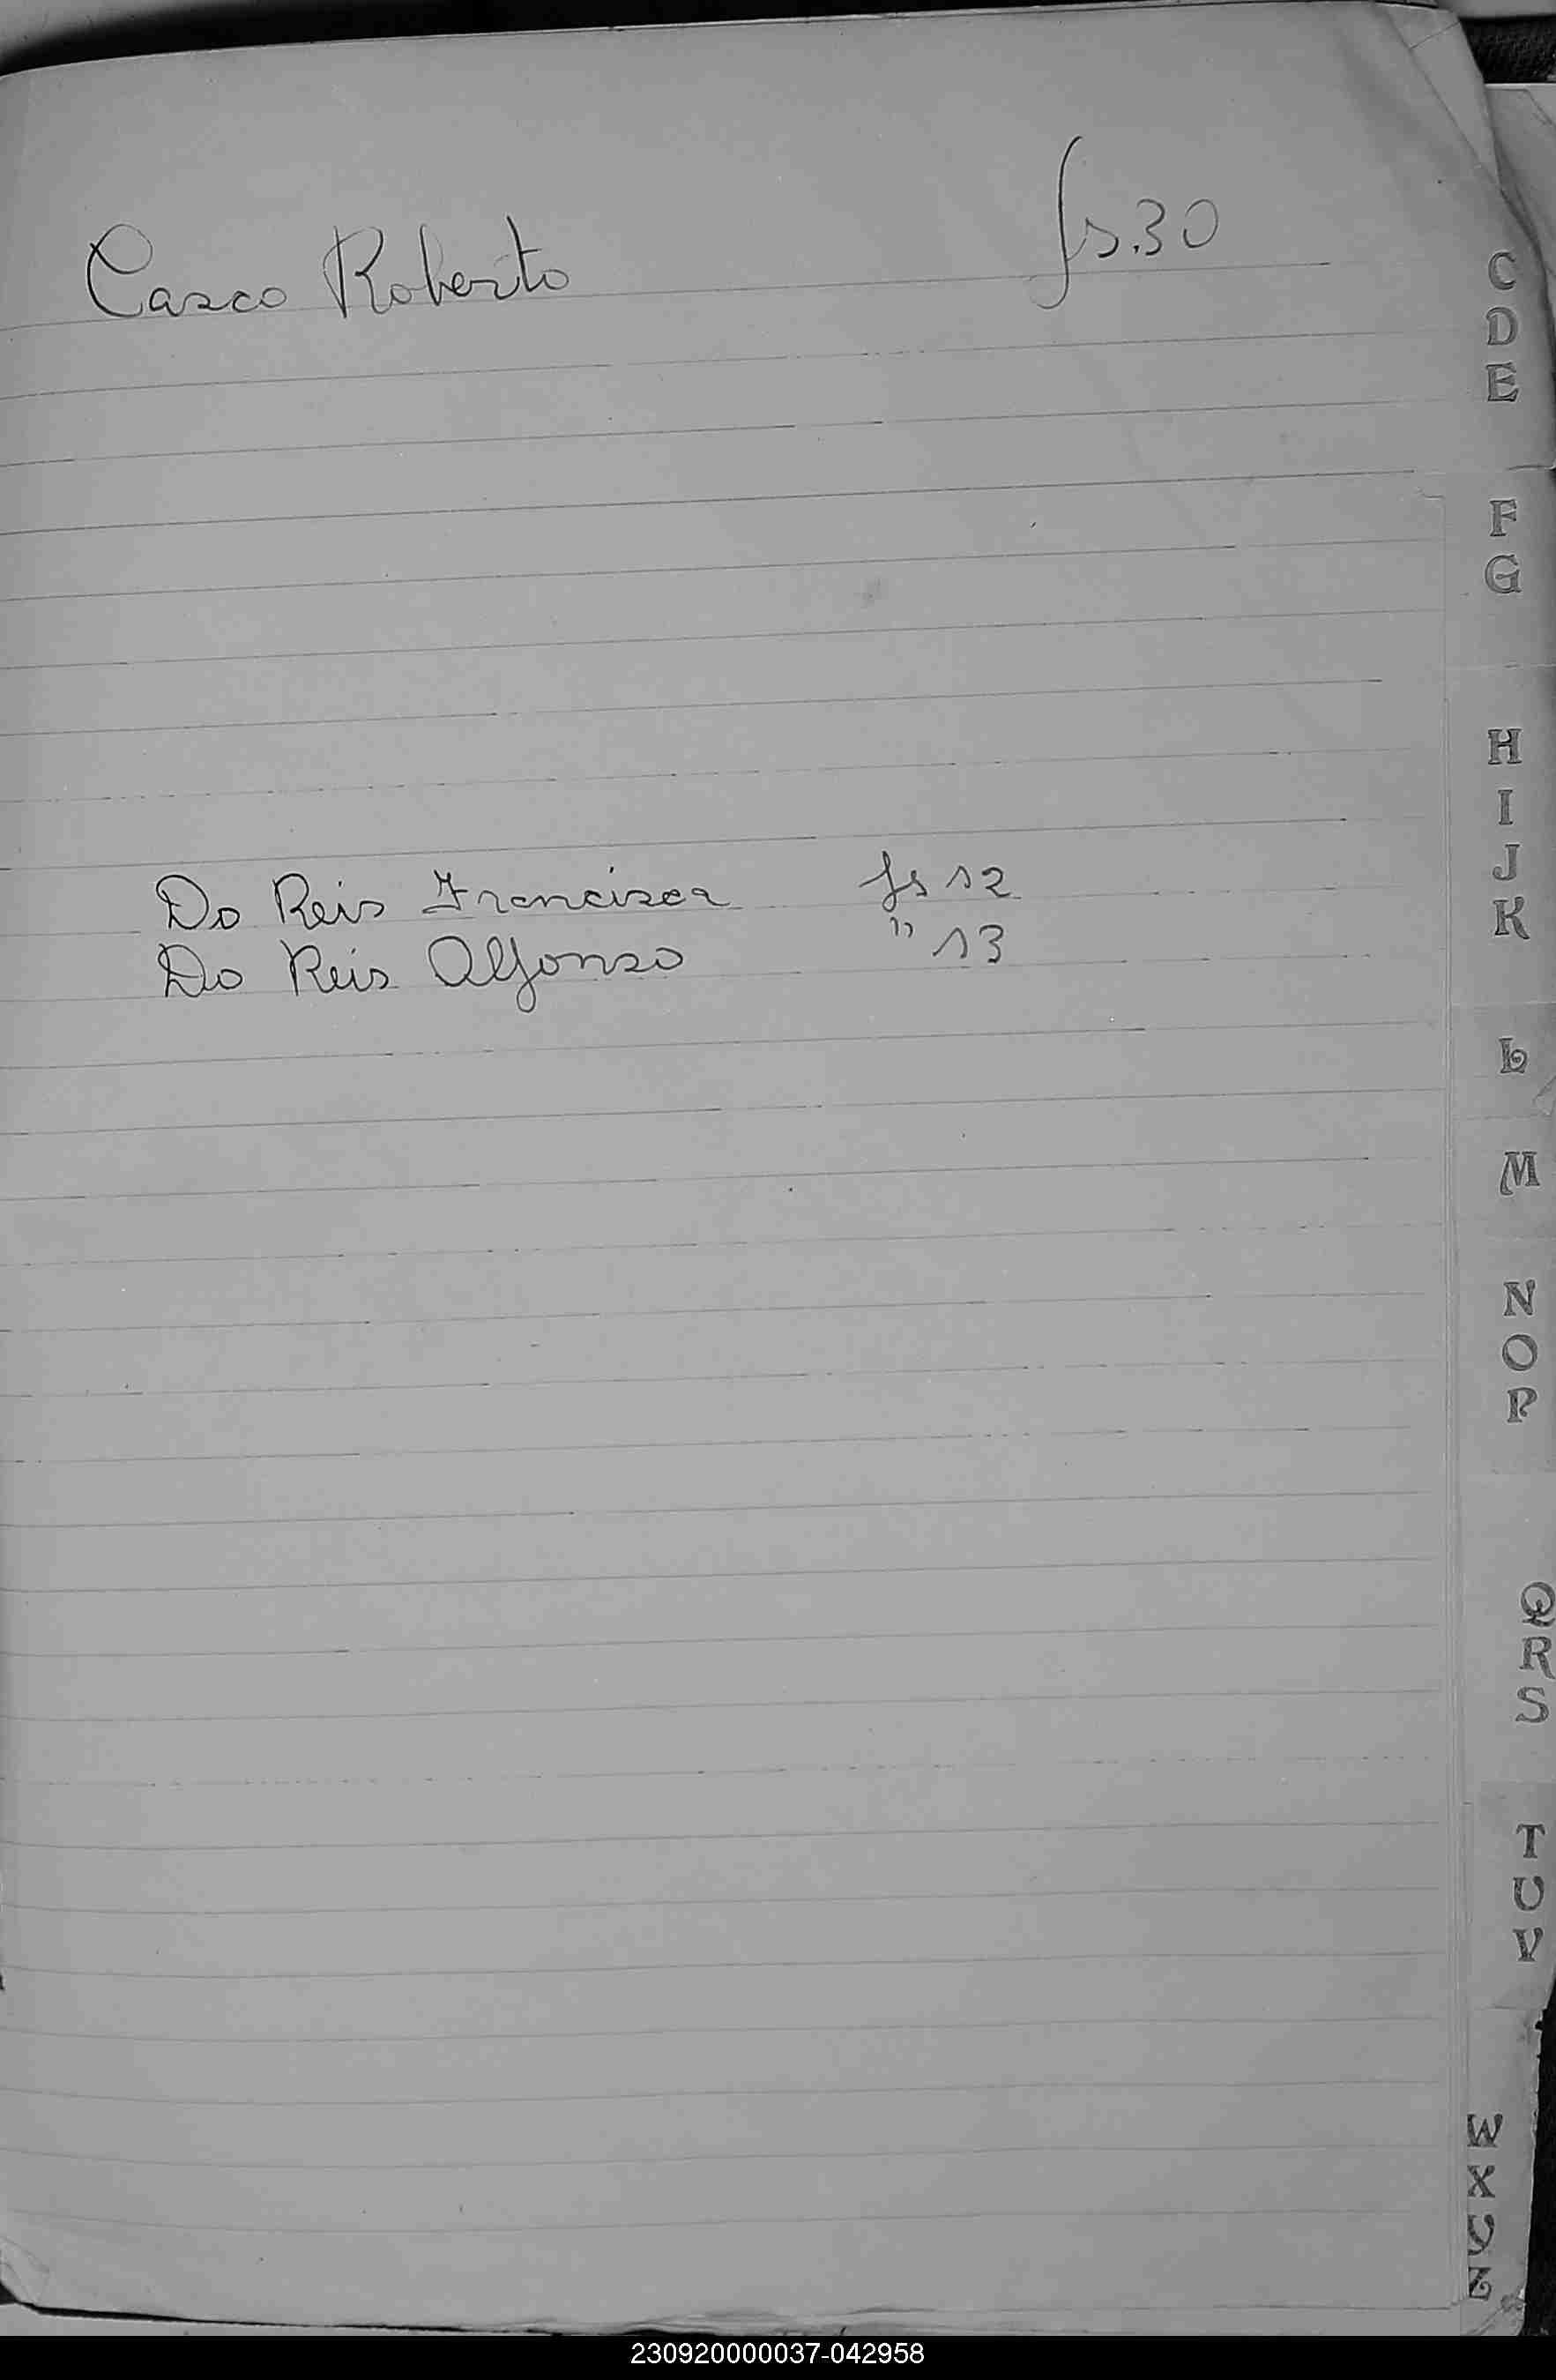 Casco Roberto fs.30
Do Reis Francisca fs 12
Do Reis Alfonso " 13
C
D
E
F
G
H
I
J
K
L
M
N
O
P
Q
R
S
T
U
V
W
X
Y
Z
230920000037-042958